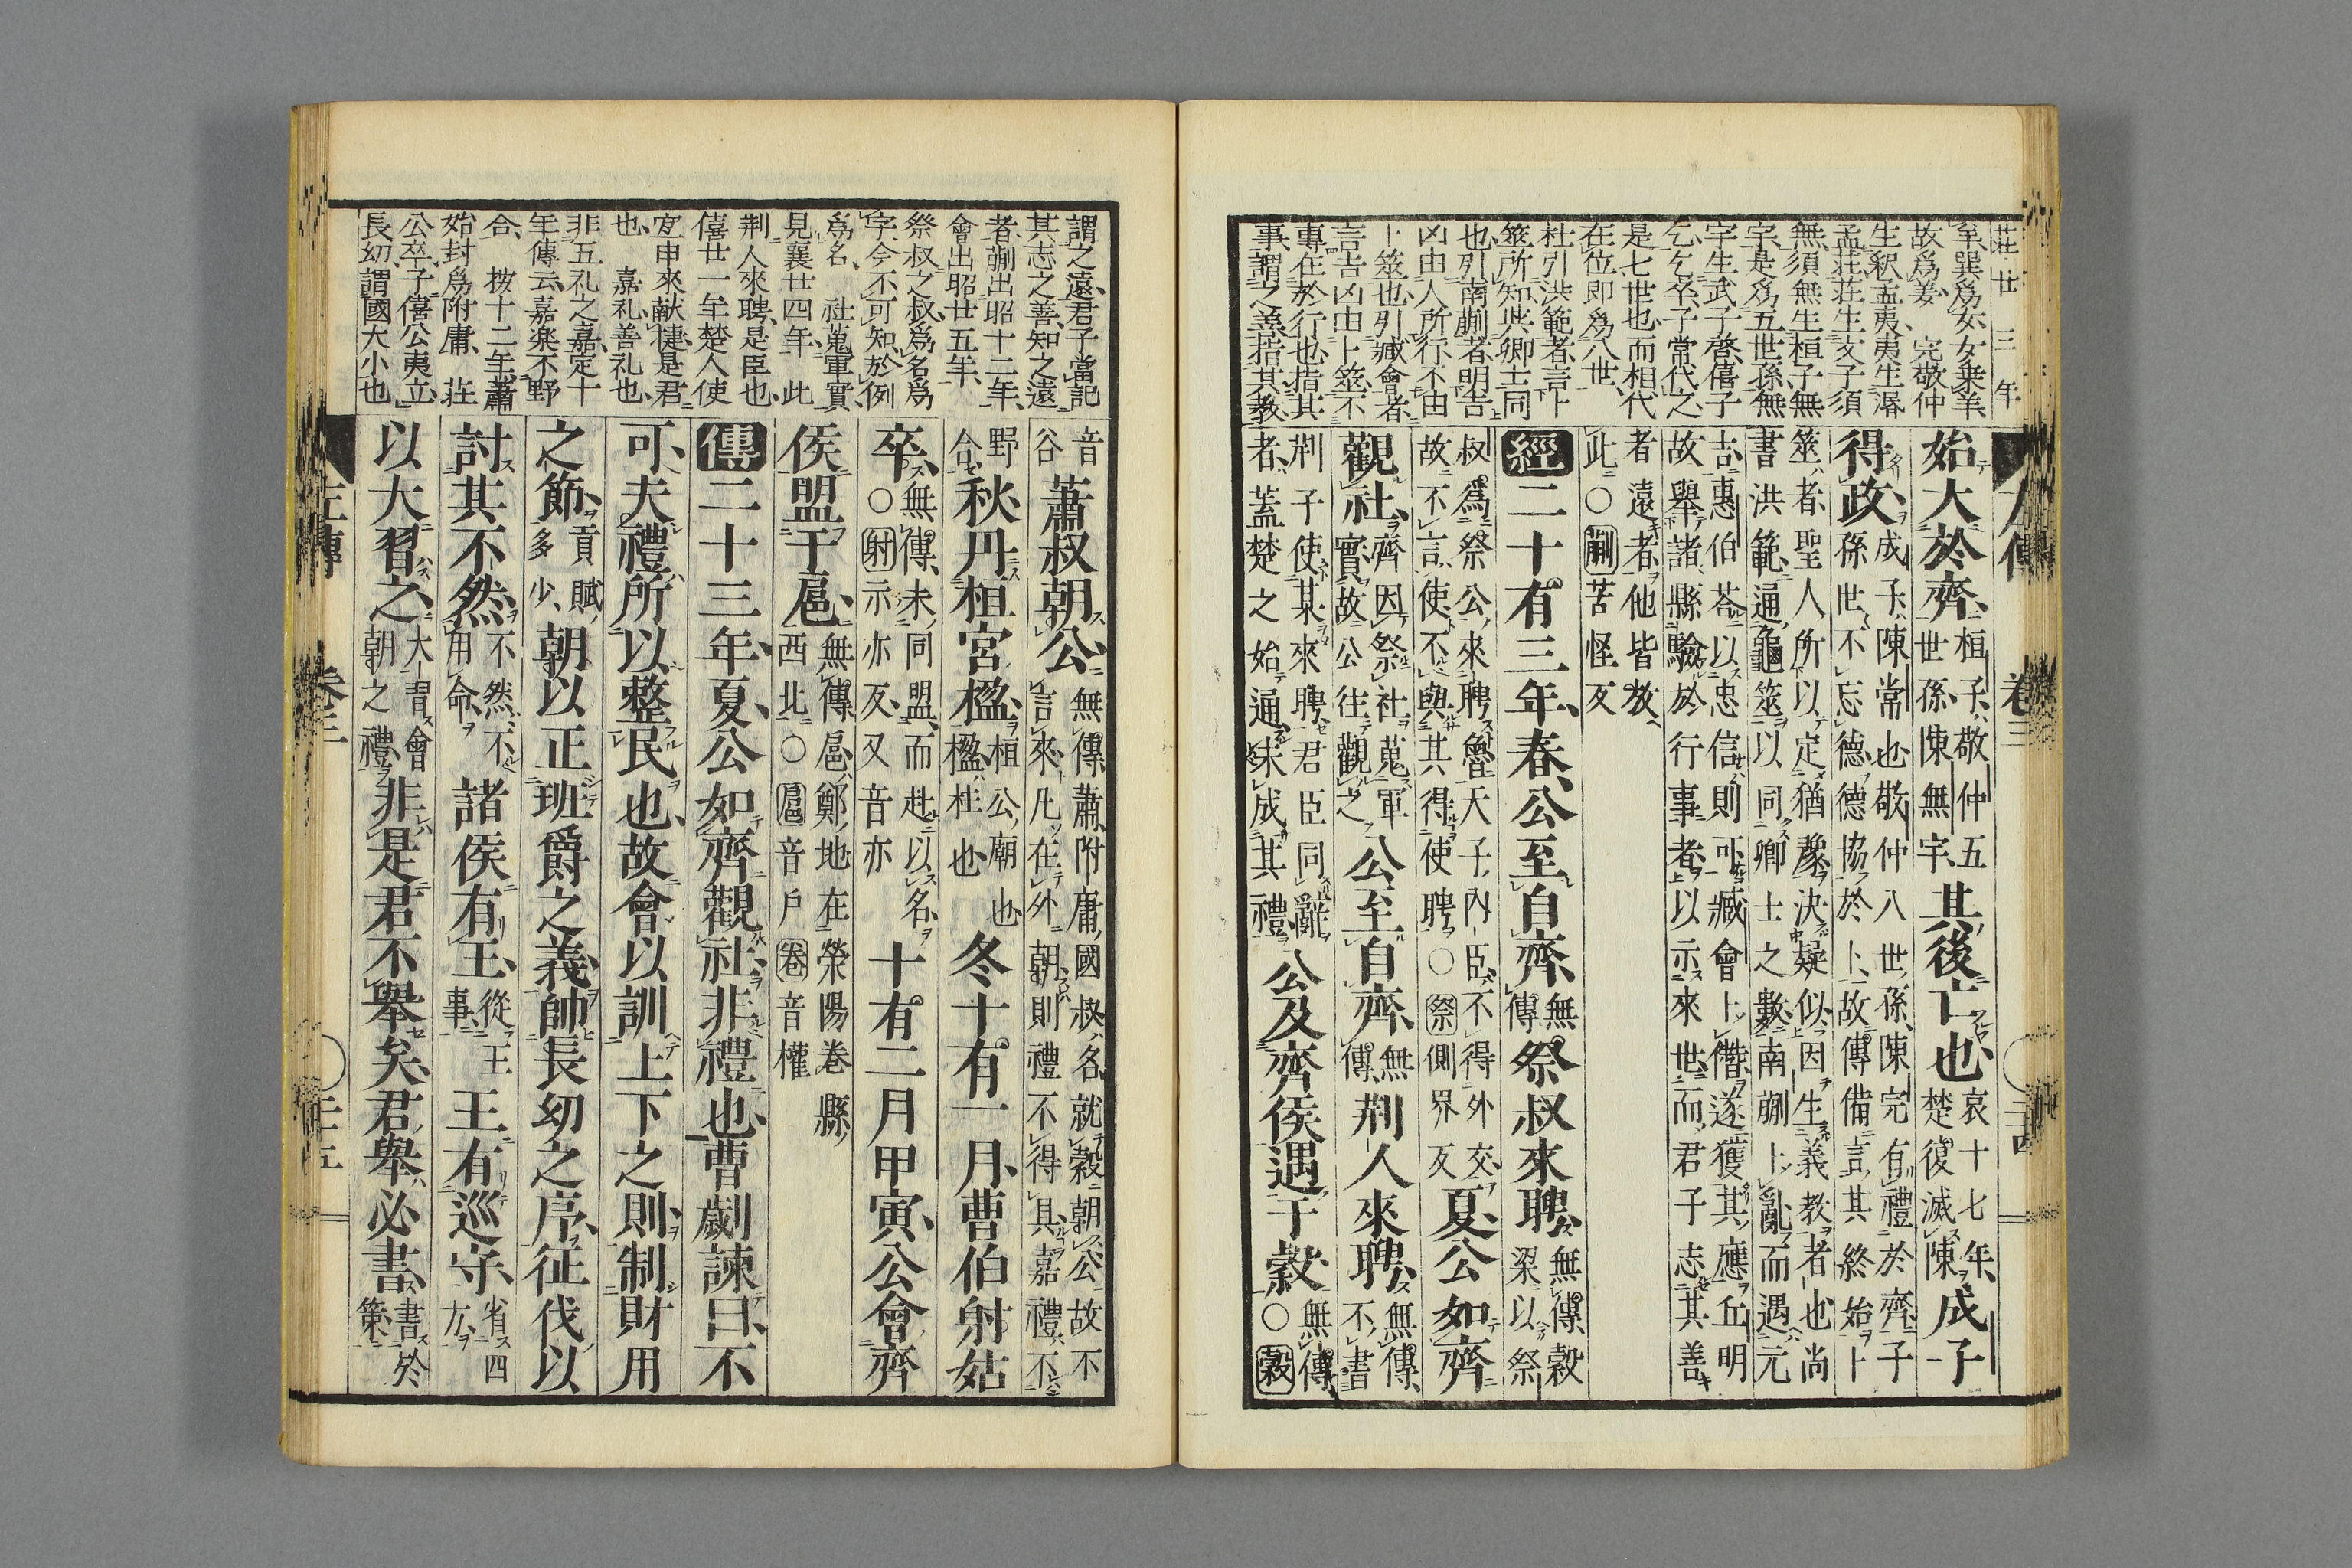 莊廿三年
至巽爲女女乗羊
故爲姜 完敬仲
生釈孟夷夷生湣
孟莊莊生文子須
無須無生桓子無
宇是爲五世孫無
宇生武子啓僖子
乞乞卒子常代之
是七世也而相代
在位即爲八世
杜引洪範者言卜
筮所知共卿士同
也引南蒯者明吉
凶由人所行不由
卜筮也引臧會者
言吉凶由卜筮不
專在於行也指其
事謂之善指其教
始大於齊桓子敬仲五世孫陳無宇其後亡也哀十七年楚復滅陳成子
得政成子陳常也敬仲八世孫陳完有禮於齊子孫世不忘德德協於卜故傳備言其終始卜
筮者聖人所以定猶豫決疑似因生義教者也尚書洪範通龜筮以同卿士之數南蒯卜亂而遇元
吉惠伯荅以忠信則可臧會卜僭遂獲其應丘明故舉諸縣驗於行事者以示來世而君子志其善
者遠者他皆放此○蒯苦怪反
經二十有三年春公至自齊無傳祭叔來聘無傳穀梁以祭
叔爲祭公來聘魯天子內臣不得外交故不言使不與其得使聘○祭側界反夏公如齊
觀社齊因祭社蒐軍實故公往觀之公至自齊無傳荊人來聘無傳不書
荊子使某來聘君臣同辭者蓋楚之始通未成其禮公及齊侯遇于穀無傳○穀
謂之遠君子當記
其志之善知之遠
者蒯出昭十二年
會出昭廿五年
祭叔之叔爲名爲
字今不可知於例
爲名 社蒐軍實
見襄廿四年 此
荆人來聘是臣也
僖廿一年楚人使
宜申來献捷是君
也 嘉礼善礼也
非五礼之嘉定十
年傳云嘉楽不野
合 按十二年蕭
始封爲附庸 莊
公卒子僖公夷立
長幼謂國大小也
音谷蕭叔朝公無傳蕭附庸國叔名就穀朝公故不言來凡在外朝則禮不得具嘉禮不
野合秋丹桓宮楹桓公廟也楹柱也冬十有一月曹伯射姑
卒無傳未同盟而赴以名○射示亦反又音亦十有二月甲寅公會齊
侯盟于扈無傳扈鄭地在滎陽卷縣西北○扈音戶卷音權
傳二十三年夏公如齊觀社非禮也曹劌諫曰不
可夫禮所以整民也故會以訓上下之則制財用
之節貢賦多少朝以正班爵之義帥長幼之序征伐以
討其不然不然不用命諸侯有王從王事王有巡守省四方
以大習之大習會朝之禮非是君不舉矣君舉必書書於策
左傳
卷三